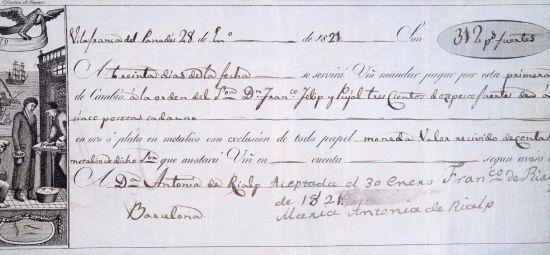 Oficina de Gaspar.
Vilafranca del Panadés 28 de En.º de 1821 Son 312 p.s fuertes
A treinta dias de la fecha se servirá Vm mandar pagar por esta primera
de Cambio a la orden del S.or D.n Fran.co Felip y Pujol tres Cientos doze pesos fuertes de á
cinco pesetas cada uno
en oro ó plata en metalico con exclusion de todo papel moneda Valor recivido de contado
metalico de dicho S.or que anotará Vm en cuenta segun aviso
A D.a Antonia de Rialp
Barcelona
Aceptada el 30 Enero
de 1821
Fran.co de Ria
Maria Antonia de Rialp
1.a